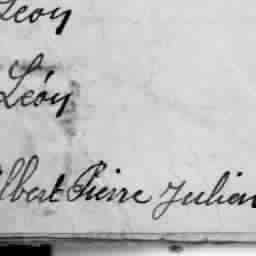 Léon
Léon
Albert Pierre Julien